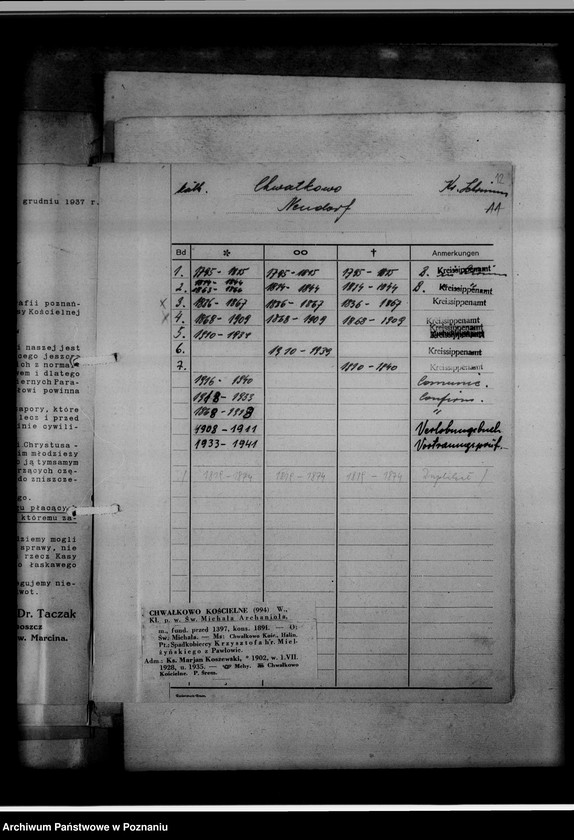 grudniu 1937 r.
afii poznań-
y Kościelnej
i naszej jest
cego jeszcze
ich z normal-
em i dlatego
iernych Para-
łowi powinna
apory, które
lecz i przed
inie cywili-
Chrystusa -
im młodzieży
o ją tymsamym
rzących czę-
do zniszcze-
go.
gu płacący
któremu za-
dziemy mogli
sprawy, nie
rzecz Kasy
o łaskawego
gujemy nie-
wot.
Dr. Taczak
boszcz
w. Marcina.
12
kath. Chwałkowo Kr. Schrimm
Neudorf AA
Bd * ∞ † Anmerkungen
1. 1795-1815 1795-1815 1795-1815 B. Kreissippenamt
2. 1814-1844 1814-1844 1814-1844 B. Kreissippenamt
x 3. 1836-1867 1836-1867 1836-1867 Kreissippenamt
x 4. 1868-1909 1868-1909 1868-1909 Kreissippenamt
5. 1910-1934 Kreissippenamt
6. 1910-1939 Kreissippenamt
7. 1910-1940 Kreissippenamt
1916-1940 Communic.
1918-1933 Confirm.
1868-1918 "
1908-1911 Verlobungsbuch
1933-1941
1874 1874 1874
CHWAŁKOWO KOŚCIELNE (994) W.,
Kł. p. w. Św. Michała Archanioła,
m., fund. przed 1397, kons. 1891. — O:
Św. Michała. — Ms: Chwałkowo Kośc., Halin.
Pt.: Spadkobiercy Krzysztofa hr. Miel-
żyńskiego z Pawłowic.
Adm.: Ks. Marjan Koszewski, * 1902, w. 1.VII.
1928, n. 1935. — Mchy. Chwałkowo
Kościelne. P. Śrem.
Archiwum Państwowe w Poznaniu